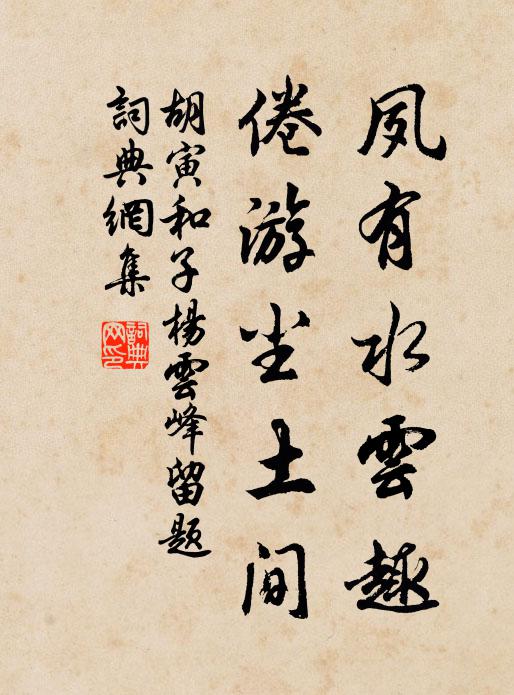 夙有水雲趣
倦游尘土间
胡寅和子楊雲峰留题
詞典網集
詞典网印